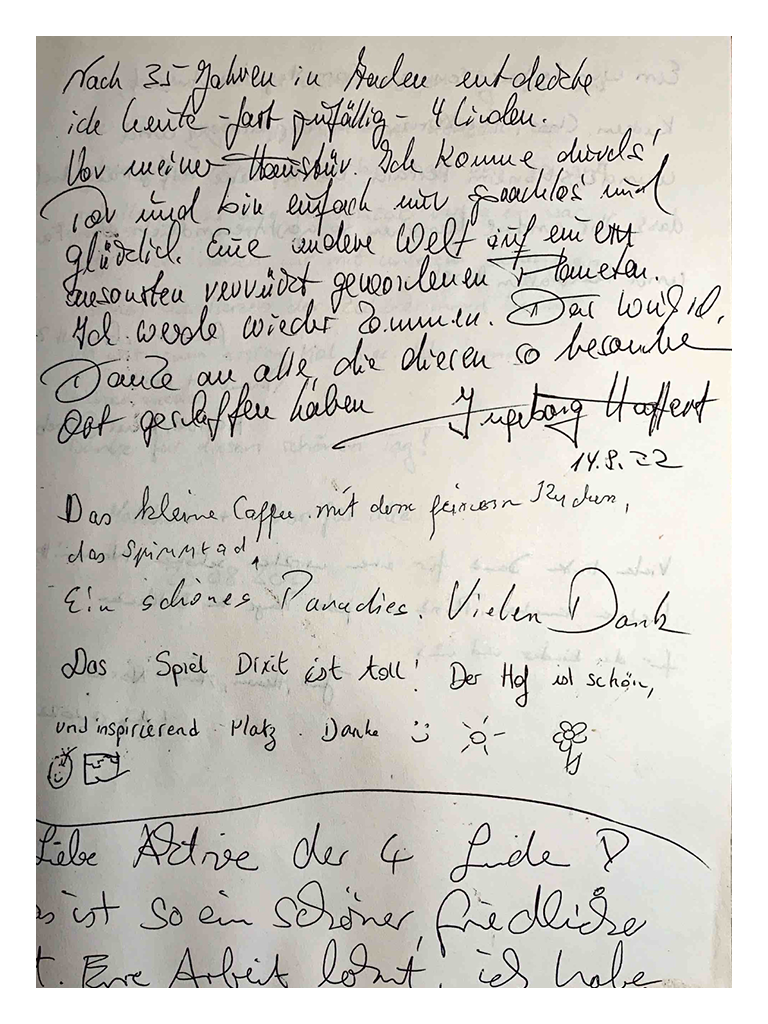 Nach 35 Jahren in Aachen entdecke
ich heute - fast zufällig - 4 Linden.
Vor meiner Haustür. Ich komme durchs
Tor und bin einfach nur sprachlos und
glücklich. Eine andere Welt auf einem
ansonsten verrückt gewordenen Planeten.
Ich werde wieder kommen. Das weiß ich.
Danke an alle die diesen so besonde
Ort geschaffen haben Ingeborg
14.8.22
Das kleine Caffee mit dem feinem Kuchen,
das Spinnrad,
Ein schönes Paradies. Vielen Dank
Das Spiel Dixit ist toll! Der Hof ist schön,
und inspirierend Platz. Danke
Liebe Aktive der 4 Linde D
s ist so ein schöner, friedliche
t. Eure Arbeit lohnt, ich habe